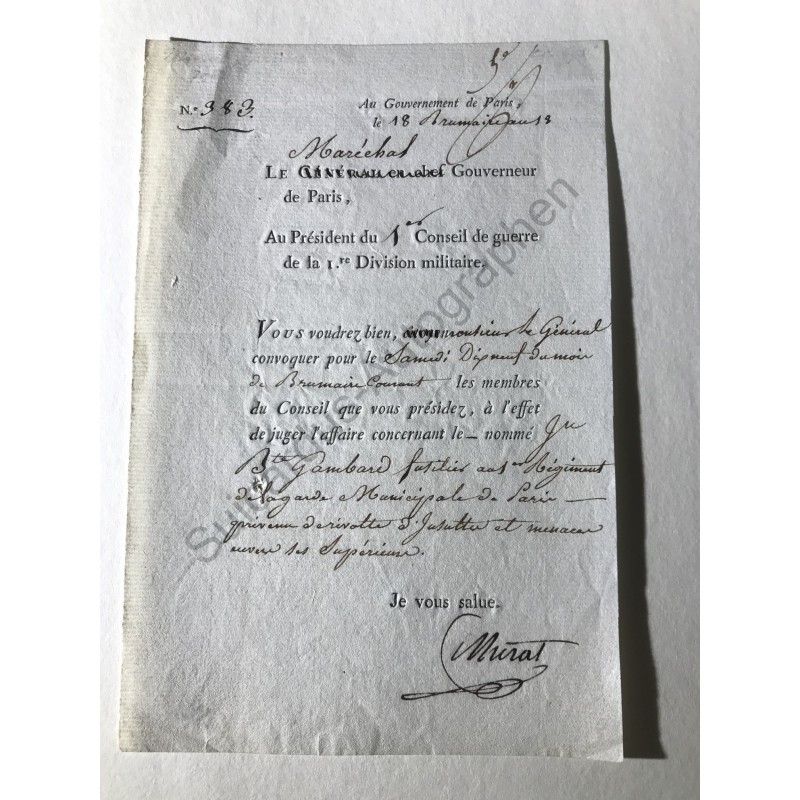 N.º 383.
Au Gouvernement de Paris,
le 18 Brumaire an 13
Maréchal
LE GÉNÉRAL en chef Gouverneur
de Paris,
Au Président du 1er Conseil de guerre
de la 1.re Division militaire.
VOUS voudrez bien, Monsieur le Général
convoquer pour le Samedi Dixneuf du mois
de Brumaire Courant les membres
du Conseil que vous présidez, à l'effet
de juger l'affaire concernant le nommé Jn
Bte Gambard fusilier au 1er Régiment
de la garde Municipale de Paris
prévenu de révolte d'Insulte et menaces
envers ses Supérieurs.
Je vous salue.
Murat